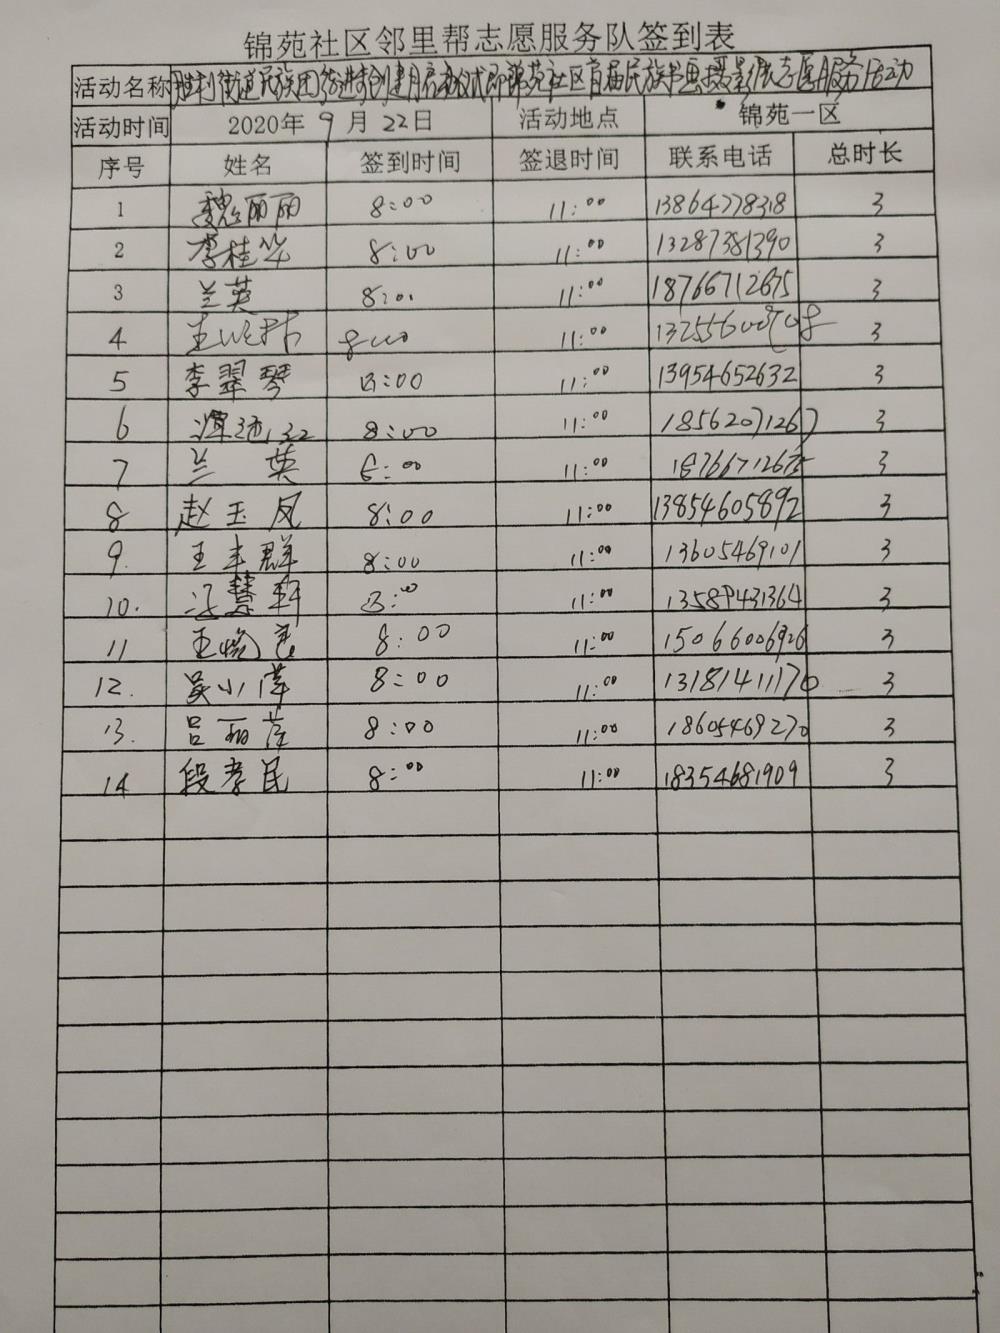 锦苑社区邻里帮志愿服务队签到表
活动名称 胜利街道民族团结进步创建月启动仪式即锦苑社区首届民族书画摄影展志愿服务活动
活动时间 2020年 9 月 22日 活动地点 锦苑一区
序号 姓名 签到时间 签退时间 联系电话 总时长
1 魏丽丽 8:00 11:00 13864778318 3
2 李桂华 8:00 11:00 13287381390 3
3 兰英 8:00 11:00 18766712675 3
4 8:00 11:00 3
5 李翠琴 8:00 11:00 13954652632 3
6 8:00 11:00 18562071267 3
7 兰英 8:00 11:00 18766712675 3
8 赵玉凤 8:00 11:00 13854605892 3
9. 王丰群 8:00 11:00 13605469101 3
10. 冯慧轩 8:00 11:00 13589431364 3
11 8:00 11:00 15066006926 3
12. 吴小萍 8:00 11:00 13181411170 3
13. 吕丽萍 8:00 11:00 18605469270 3
14 段孝民 8:00 11:00 18354681909 3